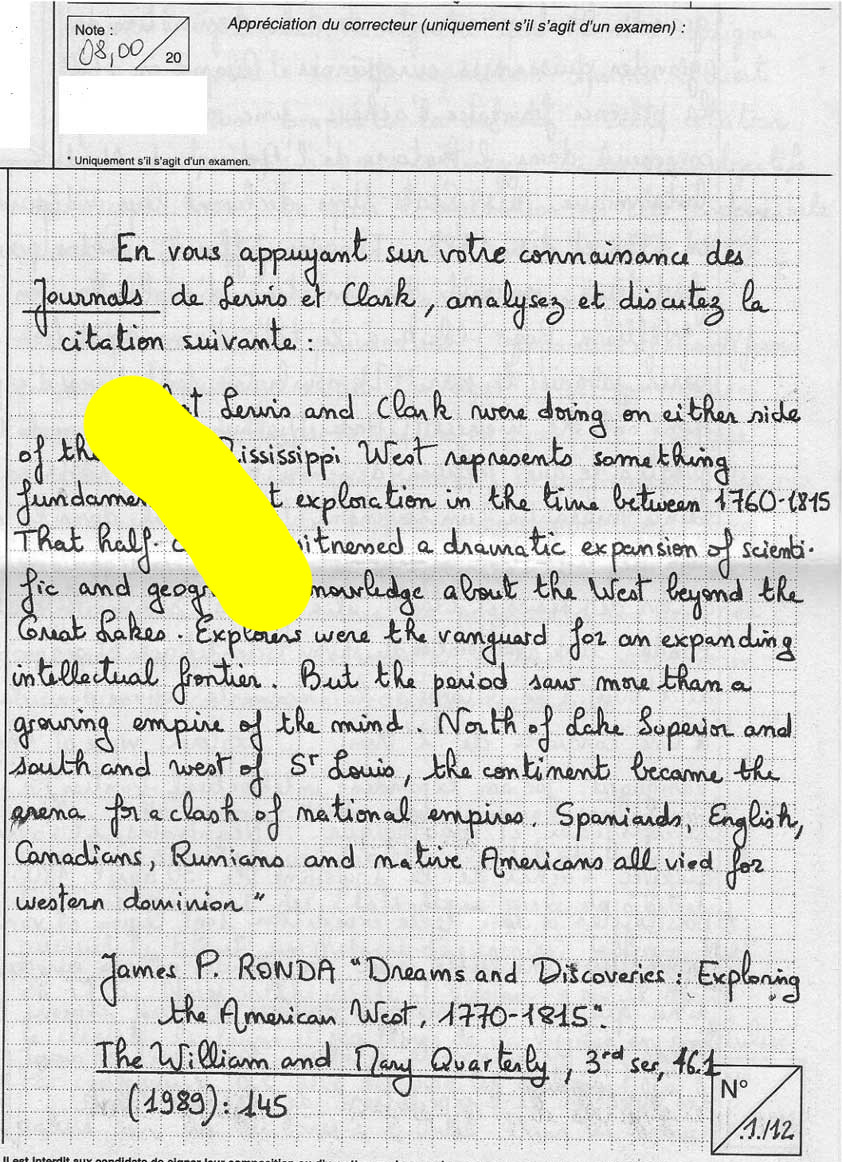 Note :
08,00
20
Appréciation du correcteur (uniquement s'il s'agit d'un examen) :
* Uniquement s'il s'agit d'un examen.
En vous appuyant sur votre connaissance des
Journals de Lewis et Clark, analysez et discutez la
citation suivante :
Lewis and Clark were doing on either side
of Mississippi West represents something
exploration in the time between 1760-1815
That half- witnessed a dramatic expansion of scienti-
fic and knowledge about the West beyond the
Great Lakes. Explorers were the vanguard for an expanding
intellectual frontier. But the period saw more than a
growing empire of the mind. North of Lake Superior and
south and west of St Louis, the continent became the
arena for a clash of national empires. Spaniards, English,
Canadians, Russians and native Americans all vied for
western dominion"
James P. RONDA "Dreams and Discoveries : Exploring
the American West, 1770-1815".
The William and Mary Quarterly, 3rd ser, 46.1
(1989) : 145
N°
1/12
Il est interdit aux candidats de signer leur composition ou